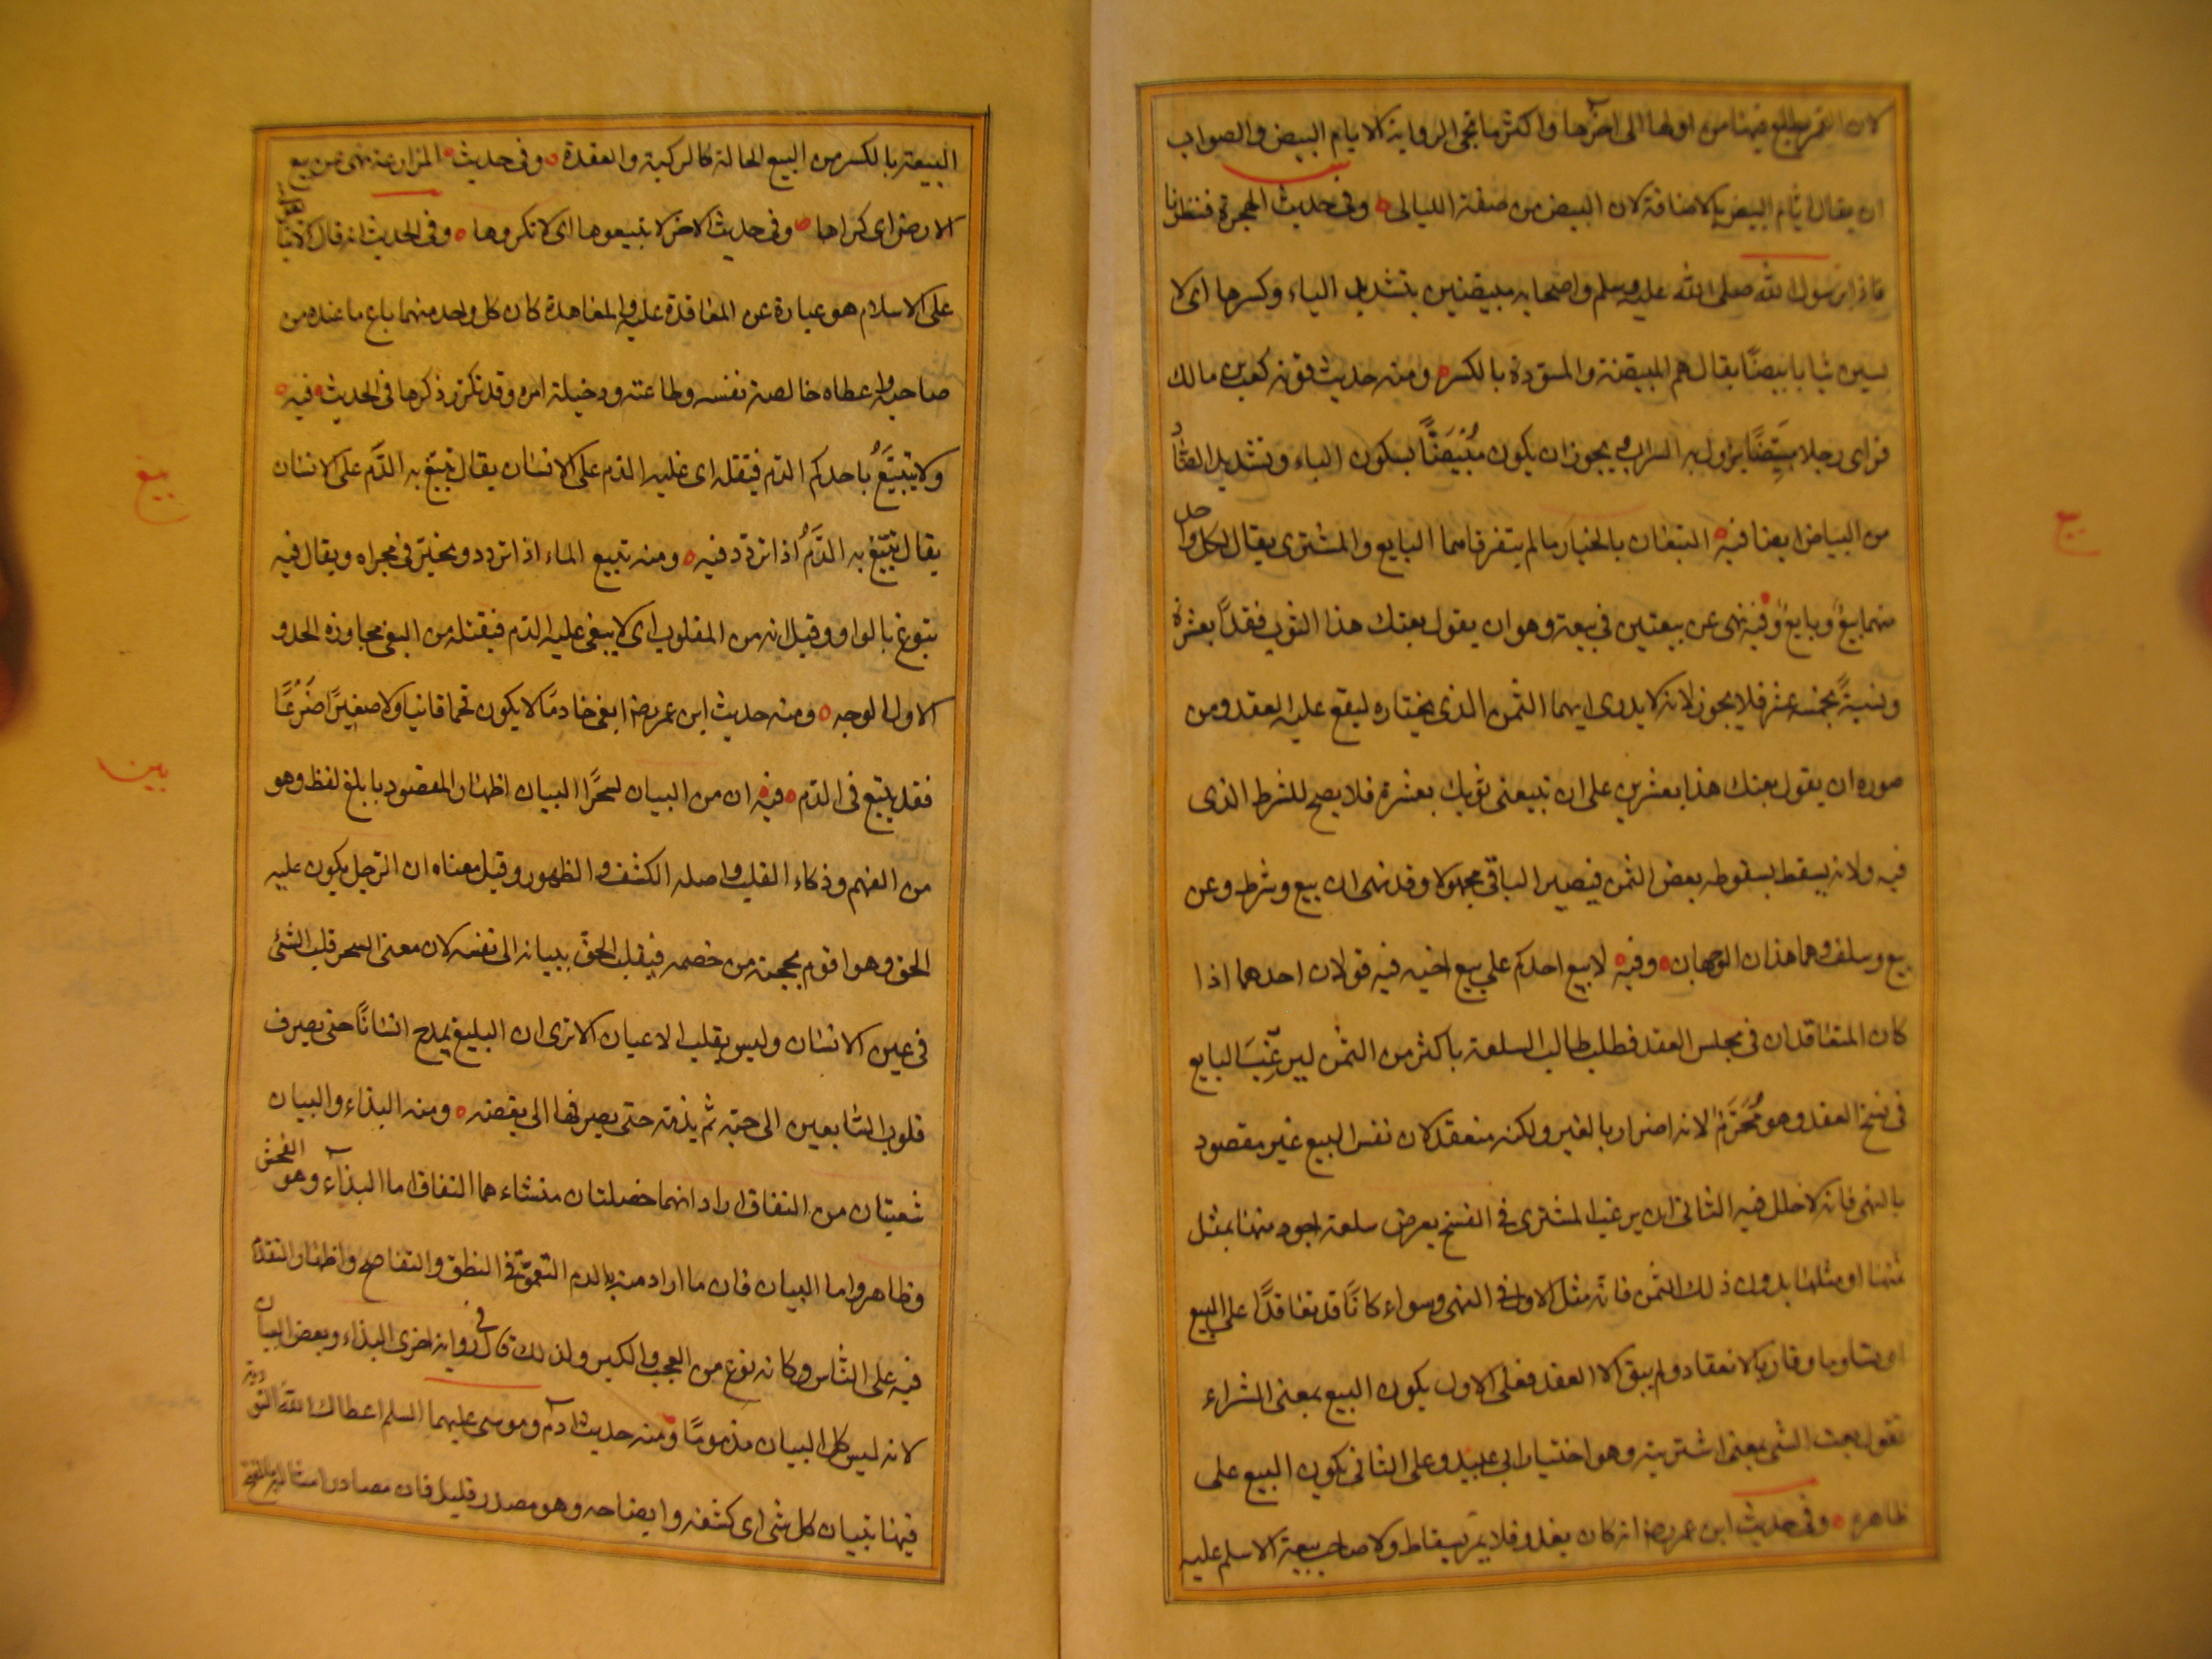 لان القمر يطلع فيها من اولها الى اخرها واكثر ما تجئ الرواية الايام البيض والصواب
ان يقال ايام البيض بالاضافة لان البيض من صفة الليالى وفى حديث الهجرة فنظرنا
فاذا رسول الله صلى الله عليه وسلم واصحابه مبيضين بتشديد الياء وكسرها اى لا
بسين ثيابا بيضا يقال هم المبيضة والمسودة بالكسر ومنه حديث توبة كعب بن مالك
فراى رجلا مبيضا يزول به السراب ويجوز ان يكون مُبْيَضًّا بسكون الباء وتشديد الضا
من البياض ايضا فيه البيعان بالخيار ما لم يتفرقا هما البايع والمشترى يقال لكل واحد
بيع
منهما بيع وبايع وفيه نهى عن بيعتين فى بيعة وهو ان يقول بعتك هذا الثوب نقدا بعشرة
ونسية بخمسة عشر فلا يجوز لانه لا يدرى ايهما الثمن الذى يختاره ليقع عليه العقد ومن
صوره ان يقول بعتك هذا بعشرين على ان تبيعنى ثوبك بعشرة فلا يصح للشرط الذى
فيه ولانه يسقط بسقوطه بعض الثمن فيصير الباقى مجهولا وقد نهى ان بيع وشرط وعن
بيع وسلف وهما هذان الوجهان وفيه لا يبيع احدكم على بيع اخيه فيه قولان احدهما اذا
كان المتعاقدان فى مجلس العقد فطلب طالب السلعة باكثر من الثمن ليرغب البايع
فى فسخ العقد وهو مُحَرَّمٌ لانه اضرار بالغير ولكنه منعقد لان نفس البيع غير مقصود
بالنهى فانه لا خلل فيه الثانى ان يرغب المشترى فى الفسخ بعرض سلعة اجود منها بمثل
ثمنها او مثلها بدون ذلك الثمن فانه مثل الاول فى النهى وسواء كانا قد تعاقدا على البيع
او تساوما وقاربا الانعقاد ولم يبق الا العقد فعلى الاول يكون البيع بمعنى الشراء
تقول بعت الشى بمعنى اشتريته وهو اختيار ابى عبيد وعلى الثانى يكون البيع على
ظاهره وفى حديث ابن عمر رضه انه كان يغدو فلا يمر بسقاط ولا صاحب بيعة الا سلم عليه
البيعة بالكسر من البيع الحالة كالركبة والعقدة وفى حديث المزارعة نهى عن بيع
الارض اى كراها وفى حديث الاخر لا تبيعوها اى لا تكروها وفى الحديث انه قال الا تبا
على الاسلام هو عبارة عن المعاقدة عليه والمعاهدة كان كل واحد منهما باع ما عنده من
صاحبه واعطاه خالصة نفسه وطاعته ودخيلة امره وقد تكرر ذكرها فى الحديث فيه
بيغ
ولا يتبيغ باحدكم الدم فيقتله اى غلبه الدم على الانسان يقال تبيغ به الدم على الانسان
يقال تبيغ به الدَّمُ اذا تردد فيه ومنه تبيغ الماء اذا تردد وتحير فى مجراه ويقال فيه
تبوغ بالواو وقيل انه من المقلوب اى لا يبغى عليه الدم فيقتله من البغى مجاوزة الحد و
الاول الوجه ومنه حديث ابن عمر رضه ابغنى خادما لا يكون قحما فانيا ولا صغيرا ضَرَعًا
فقد تبيغ فى الدم فيه ان من البيان لسحرا البيان اظهار المقصود بابلغ لفظ وهو
بين
من الفهم وذكاء القلب واصله الكشف والظهور وقيل معناه ان الرجل يكون عليه
الحق وهو اقوم بحجته من خصمه فيقلب الحق ببيانه الى نفسه لان معنى السحر قلب الشئ
فى عين الانسان وليس بقلب الاعيان الا ترى ان البليغ يمدح انسانا حتى يصرف
قلوب السامعين الى حبه ثم يذمه حتى يصرفها الى بغضه ومنه البذاء والبيان
شعبتان من النفاق اراد انهما خصلتان منشاءهما النفاق اما البذاء وهو الفحش
فظاهر واما البيان فان ما اراد منه بالدم التعمق فى النطق والتفاصح واظهار التقدم
فيه على الناس وكانه نوع من العجب والكبر ولذلك قال فى رواية اخرى البذاء وبعض البيان
لانه ليس كل البيان مذموما ومنه حديث ادم وموسى عليهما السلم اعطاك الله التورية
فيها تبيان كل شى اى كشفه وايضاحه وهو مصدر قليل فان مصادر امثاله بالفتح